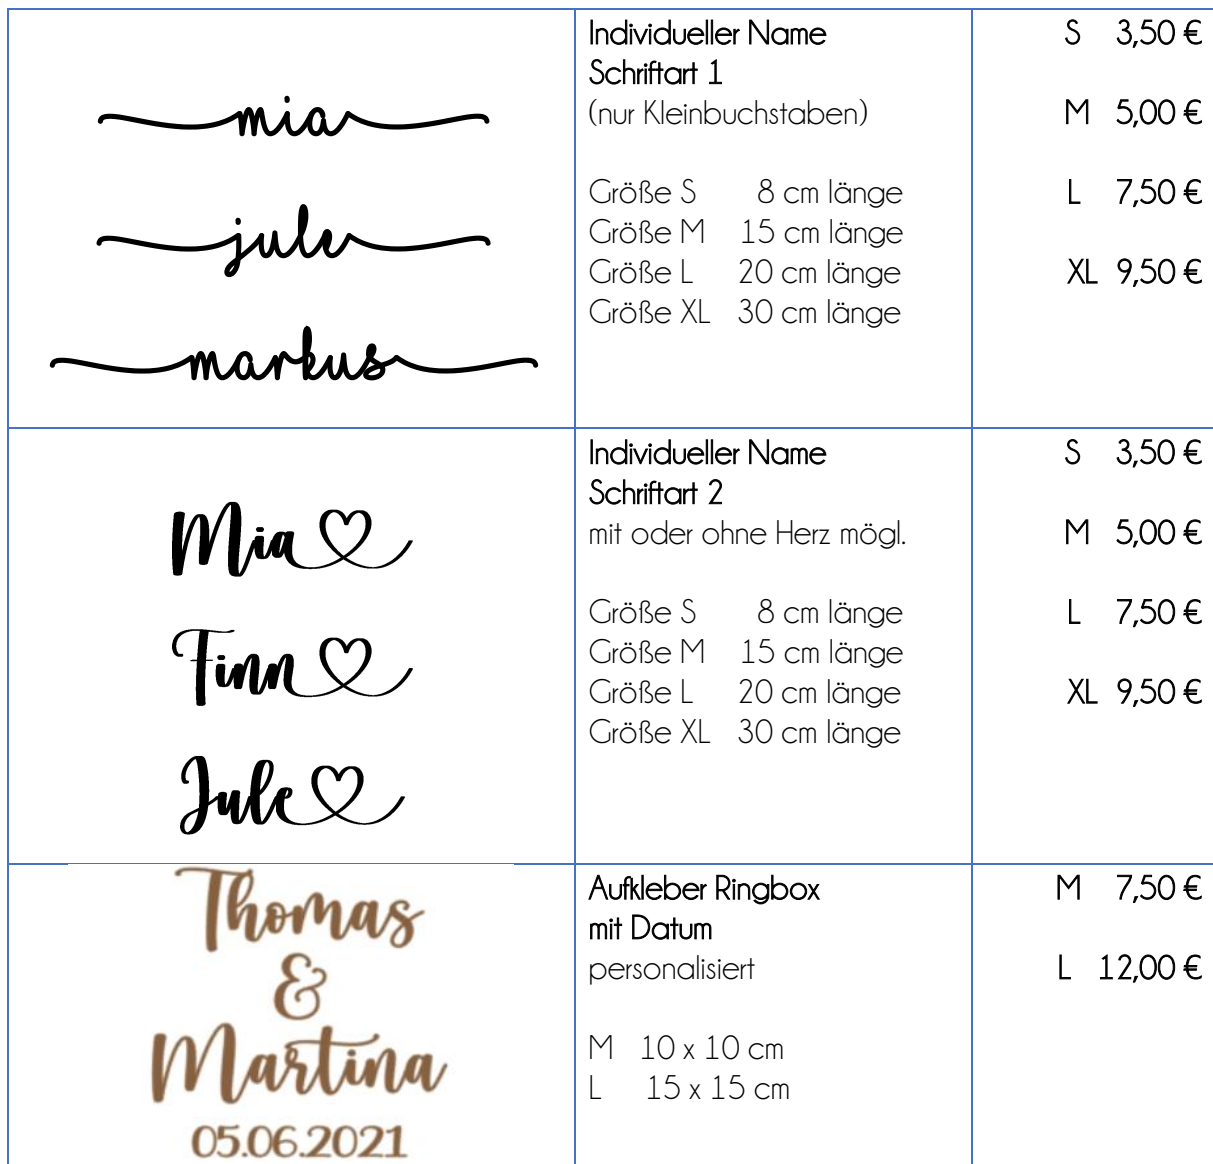 mia
jule
markus
Individueller Name
Schriftart 1
(nur Kleinbuchstaben)
Größe S 8 cm länge
Größe M 15 cm länge
Größe L 20 cm länge
Größe XL 30 cm länge
S 3,50 €
M 5,00 €
L 7,50 €
XL 9,50 €
Mia
Finn
Jule
Individueller Name
Schriftart 2
mit oder ohne Herz mögl.
Größe S 8 cm länge
Größe M 15 cm länge
Größe L 20 cm länge
Größe XL 30 cm länge
S 3,50 €
M 5,00 €
L 7,50 €
XL 9,50 €
Thomas
&
Martina
05.06.2021
Aufkleber Ringbox
mit Datum
personalisiert
M 10 x 10 cm
L 15 x 15 cm
M 7,50 €
L 12,00 €